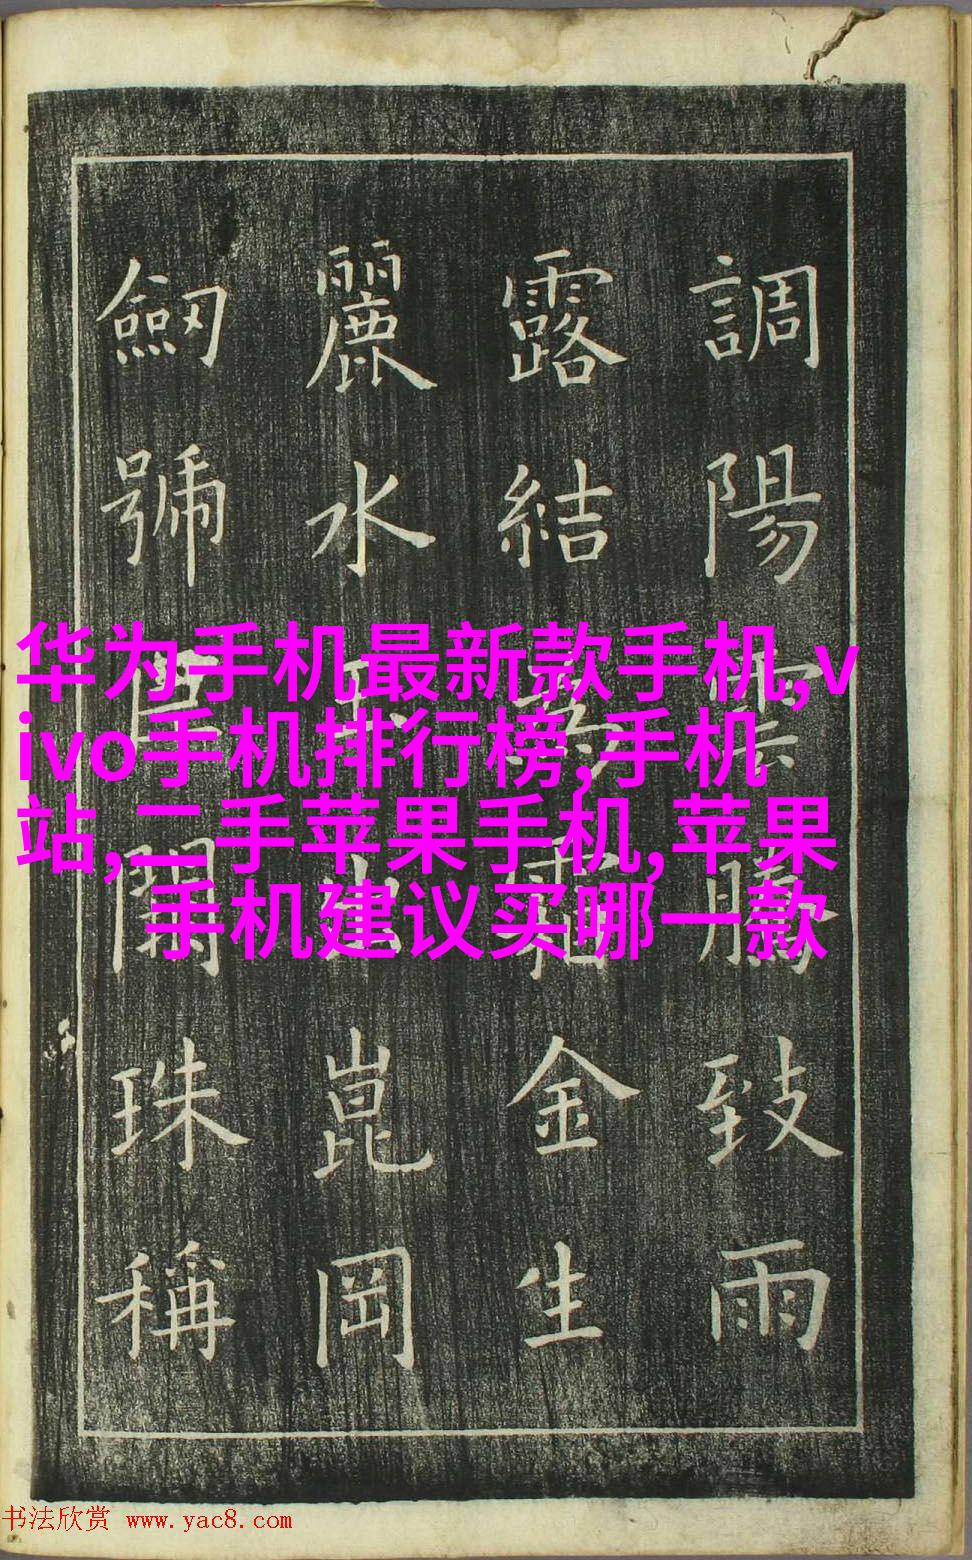 調陽雲騰致雨
露結霜金生
麗水出崑岡
劒號巨闕珠稱
华为手机最新款手机,v
ivo手机排行榜,手机
站,二手苹果手机,苹果
手机建议买哪一款
书法欣赏 www.yac8.com